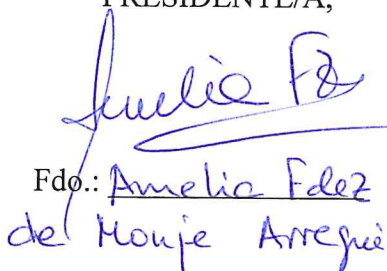 PRESIDENTE/A,
Amelia Fdz
Fdo.: Amelia Fdez
de Monje Arregui